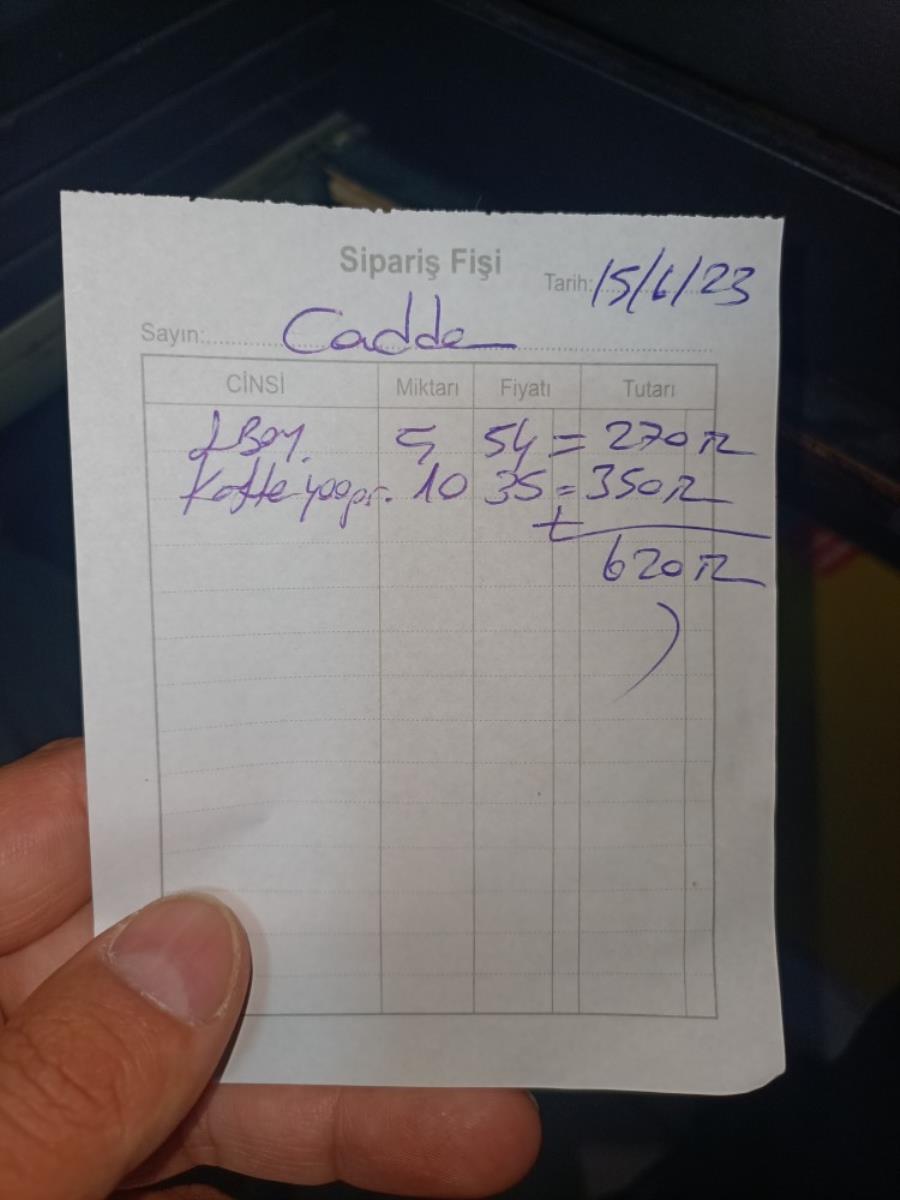 Sipariş Fişi
Tarih: 15/6/23
Sayın: Cadde
CİNSİ Miktarı Fiyatı Tutarı
L Boy. 5 54 = 270 TL
Köfte yapr. 10 35 = 350 TL
+
620 TL